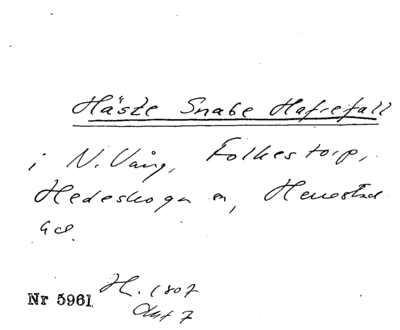 Häste Snabe Hafrefall
i N. Vång, Folkestorp,
Hedeskoga m, Herrestad
Nr 5961 H. 1807